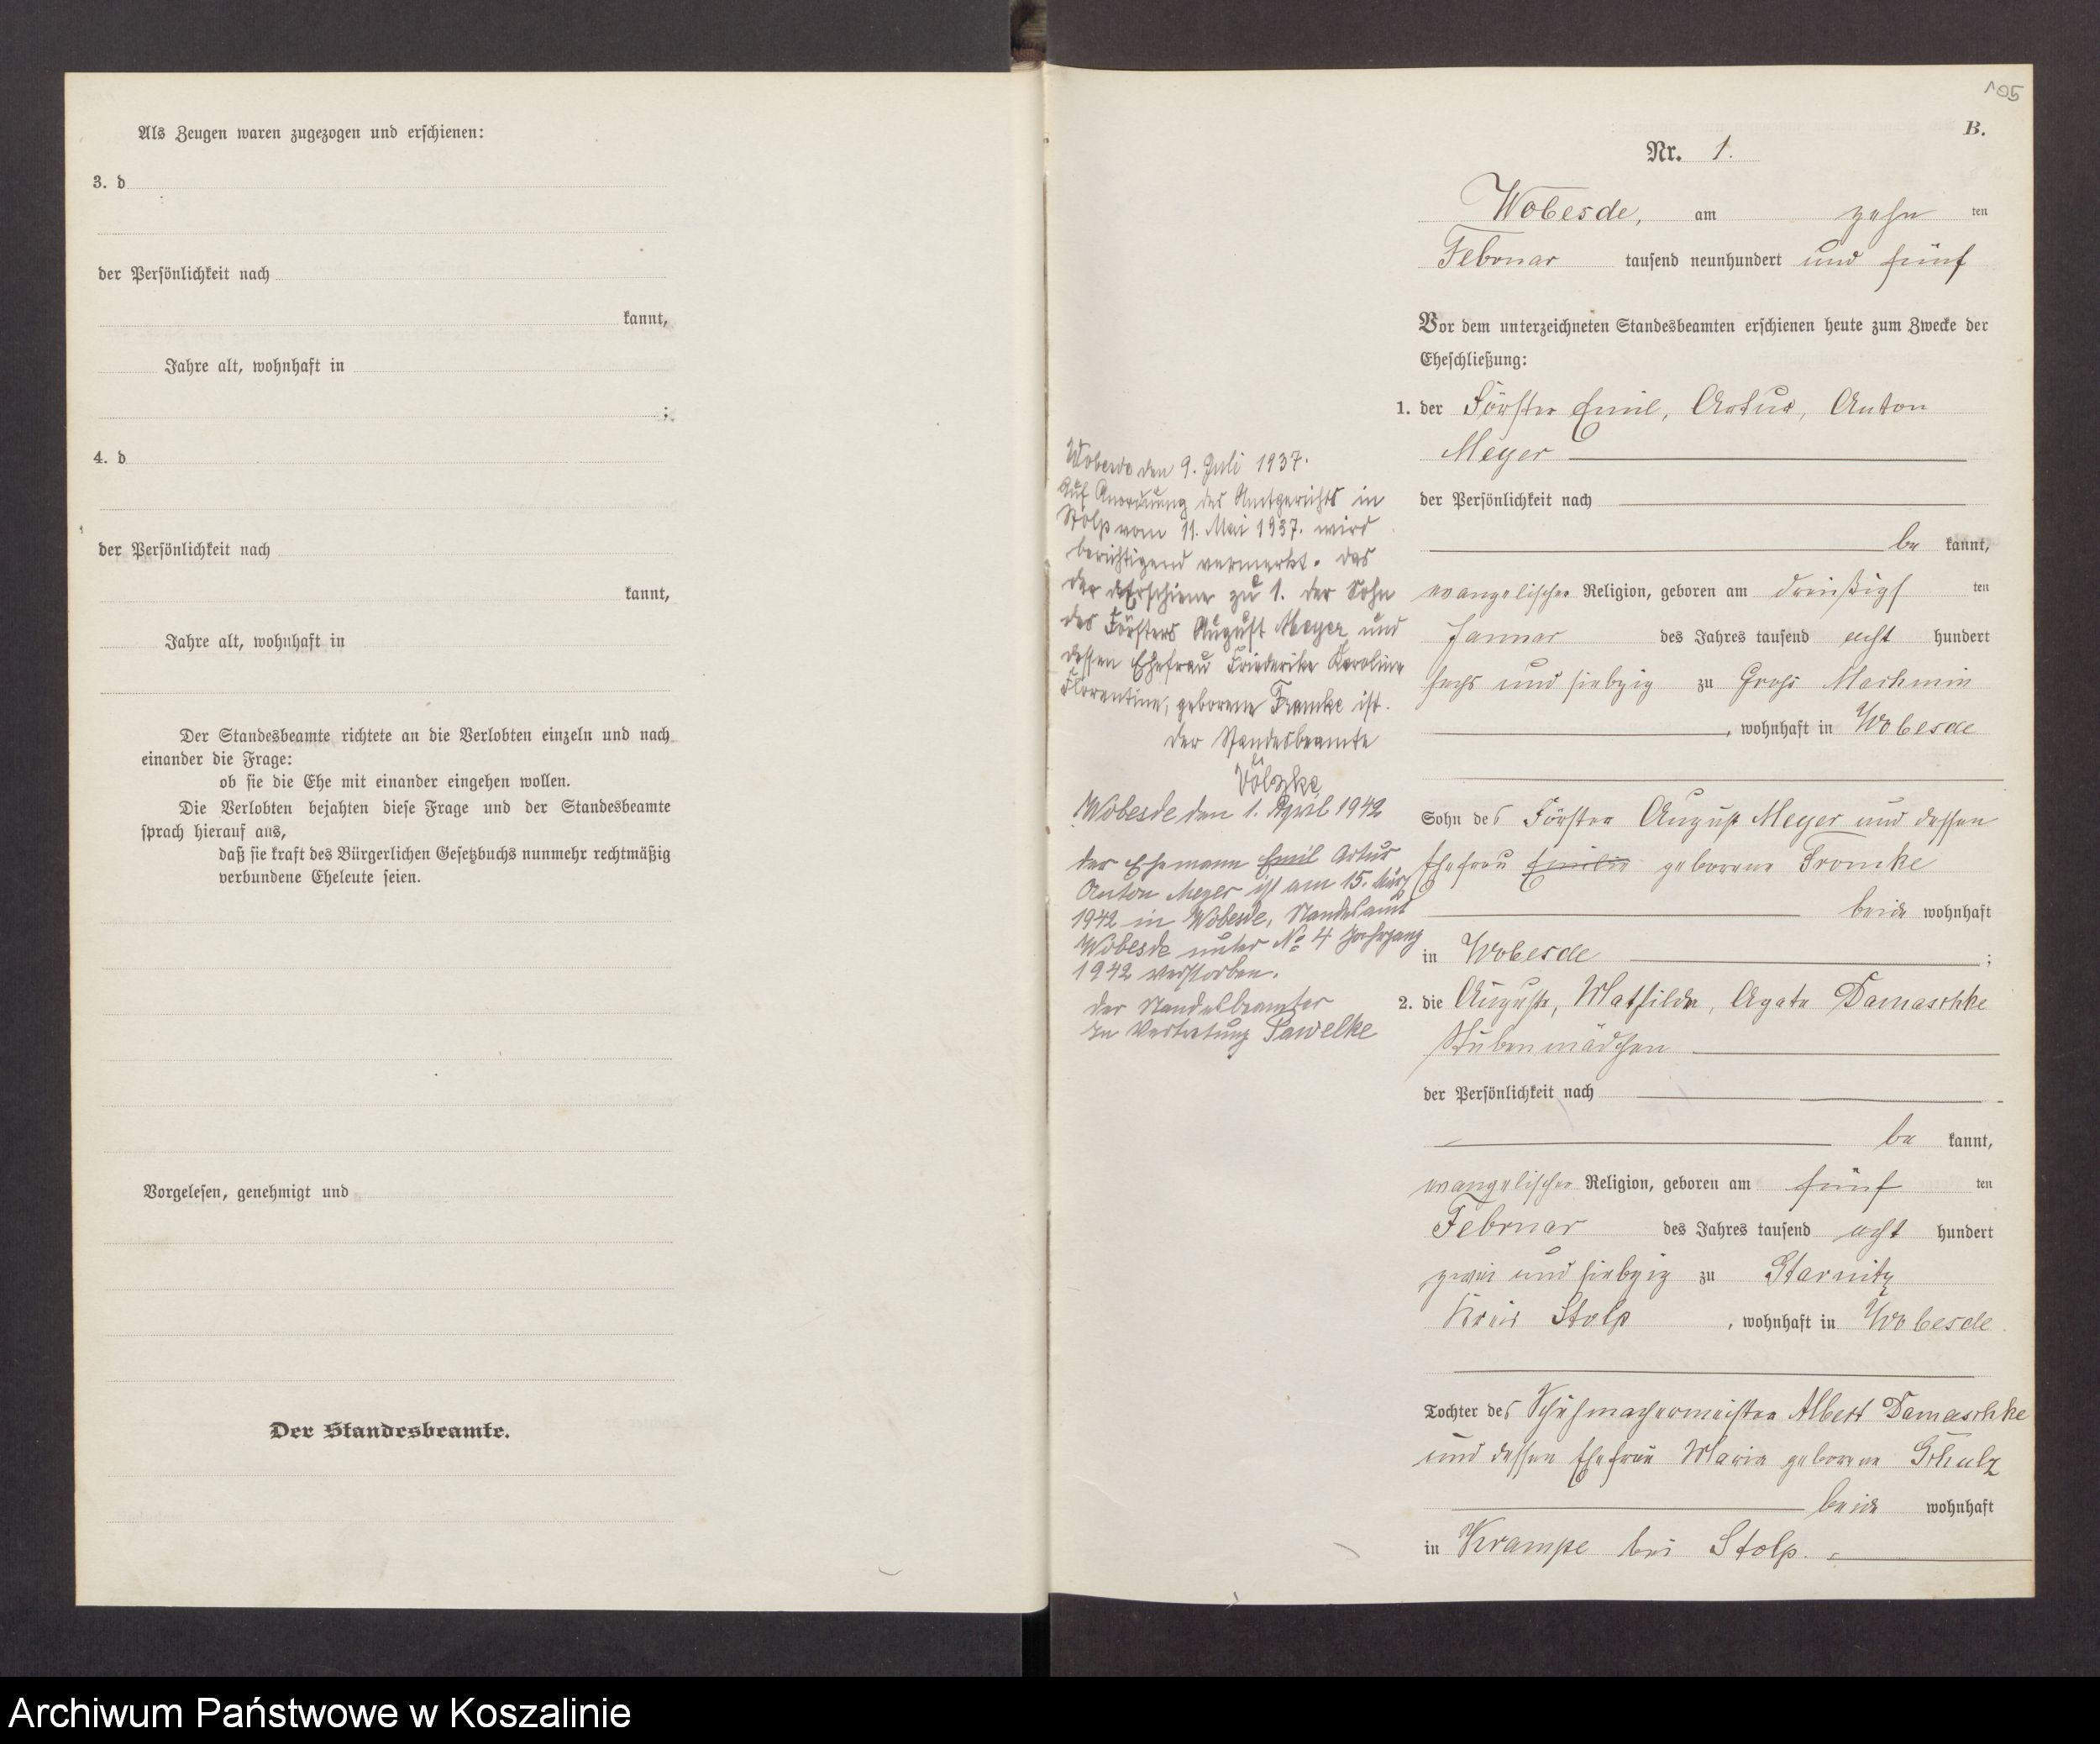 Als Zeugen waren zugezogen und erschienen:
3. d
der Persönlichkeit nach
kannt,
Jahre alt, wohnhaft in
;
4. d
der Persönlichkeit nach
kannt,
Jahre alt, wohnhaft in
Der Standesbeamte richtete an die Verlobten einzeln und nach
einander die Frage:
ob sie die Ehe mit einander eingehen wollen.
Die Verlobten bejahten diese Frage und der Standesbeamte
sprach hierauf aus,
daß sie kraft des Bürgerlichen Gesetzbuchs nunmehr rechtmäßig
verbundene Eheleute seien.
Vorgelesen, genehmigt und
Der Standesbeamte.
105
B.
Nr. 1.
Wobesde, am zehn ten
Februar tausend neunhundert und fünf
Vor dem unterzeichneten Standesbeamten erschienen heute zum Zwecke der
Eheschließung:
1. der Förster Emil, Artur, Anton
Meyer
der Persönlichkeit nach
be kannt,
evangelischer Religion, geboren am dreißigs ten
Januar des Jahres tausend acht hundert
sechs und siebzig zu Groß Machmin
, wohnhaft in Wobesde
Sohn des Förster August Meyer und dessen
Ehefrau Emilie geborene Fromke
beide wohnhaft
in Wobesde ;
2. die Auguste, Mathilde, Agate Damaschke
Stubenmädchen
der Persönlichkeit nach
be kannt,
evangelischer Religion, geboren am fünf ten
Februar des Jahres tausend acht hundert
zwei und siebzig zu Starnitz
Kreis Stolp , wohnhaft in Wobesde
Tochter des Schuhmachermeister Albert Damaschke
und dessen Ehefrau Marie geborene Schulz
beide wohnhaft
in Krampe bei Stolp.
Wobesde den 9. Juli 1937.
Auf Anordnung des Amtgerichts in
Stolp vom 11. Mai 1937. wird
berichtigend vermerkt. das
der Erschiene zu 1. der Sohn
des Försters August Meyer und
dessen Ehefrau Friederike Karoline
Florentine, geborene Framke ist.
Der Standesbeamte
Völzke
Wobesde den 1. April 1942
der Ehemann Emil Artur
Anton Meyer ist am 15. März
1942 in Wobesde, Standesamt
Wobesde unter No 4 Jahrgang
1942 verstorben.
Der Standesbeamter
In Vertretung Pawelke
Archiwum Państwowe w Koszalinie